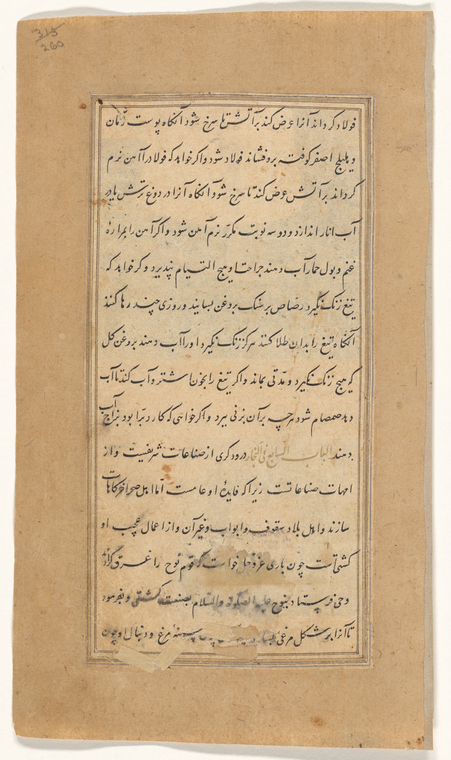 315
260
فولاد گرداند آنرا عرض کند بر آتش تا سرخ شود آنگاه پوست رمان
و هلیلج اصفر کوفته برو فشاند فولاد شود و اگر خواهد که فولاد را آهن نرم
گرداند بر آتش عرض کند تا سرخ شود آنگاه آنرا در دوغ ترش یا در
آب انار اندازد و دو سه نوبت مکرر نرم آهن شود و اگر آهن را بمراره
غنم و بول حمار آب دهند جراحتا و هیچ التیام نپذیرد و گر خواهد که
تیغ زنگ نگیرد رصاص بر سنگ بروغن بسایند و روزی چند رها کنند
آنگاه تیغ را بدان طلا کنند هرگز زنگ نگیرد و او را آب دهند بروغن گل
که هیچ زنگ نگیرد و مدتی بماند و اگر تیغ را بخون اشتر و آب کندنا آب
دهد صمصام شود هر چه بر آن بزنی ببرد و اگر خواهی که کارد تیز بود بزاج آب
دهند الباب السابع فی النجار درودگری از صناعات شریفست و از
امهات صناعاتست زیرا که فایده او عامست اما اهل صحرا خرگاهات
سازند و اهل بلاد سقوف و ابواب و غیر آن و از اعمال عجیب او
کشتی است چون باری عز و جل خواست که قوم نوح را غرق گرداند
وحی فرستاد بنوح علیه الصلوة والسلام بصنعت کشتی و بفرمود
تا آنرا بر شکل مرغی سینه مرغ و دنبال او چون